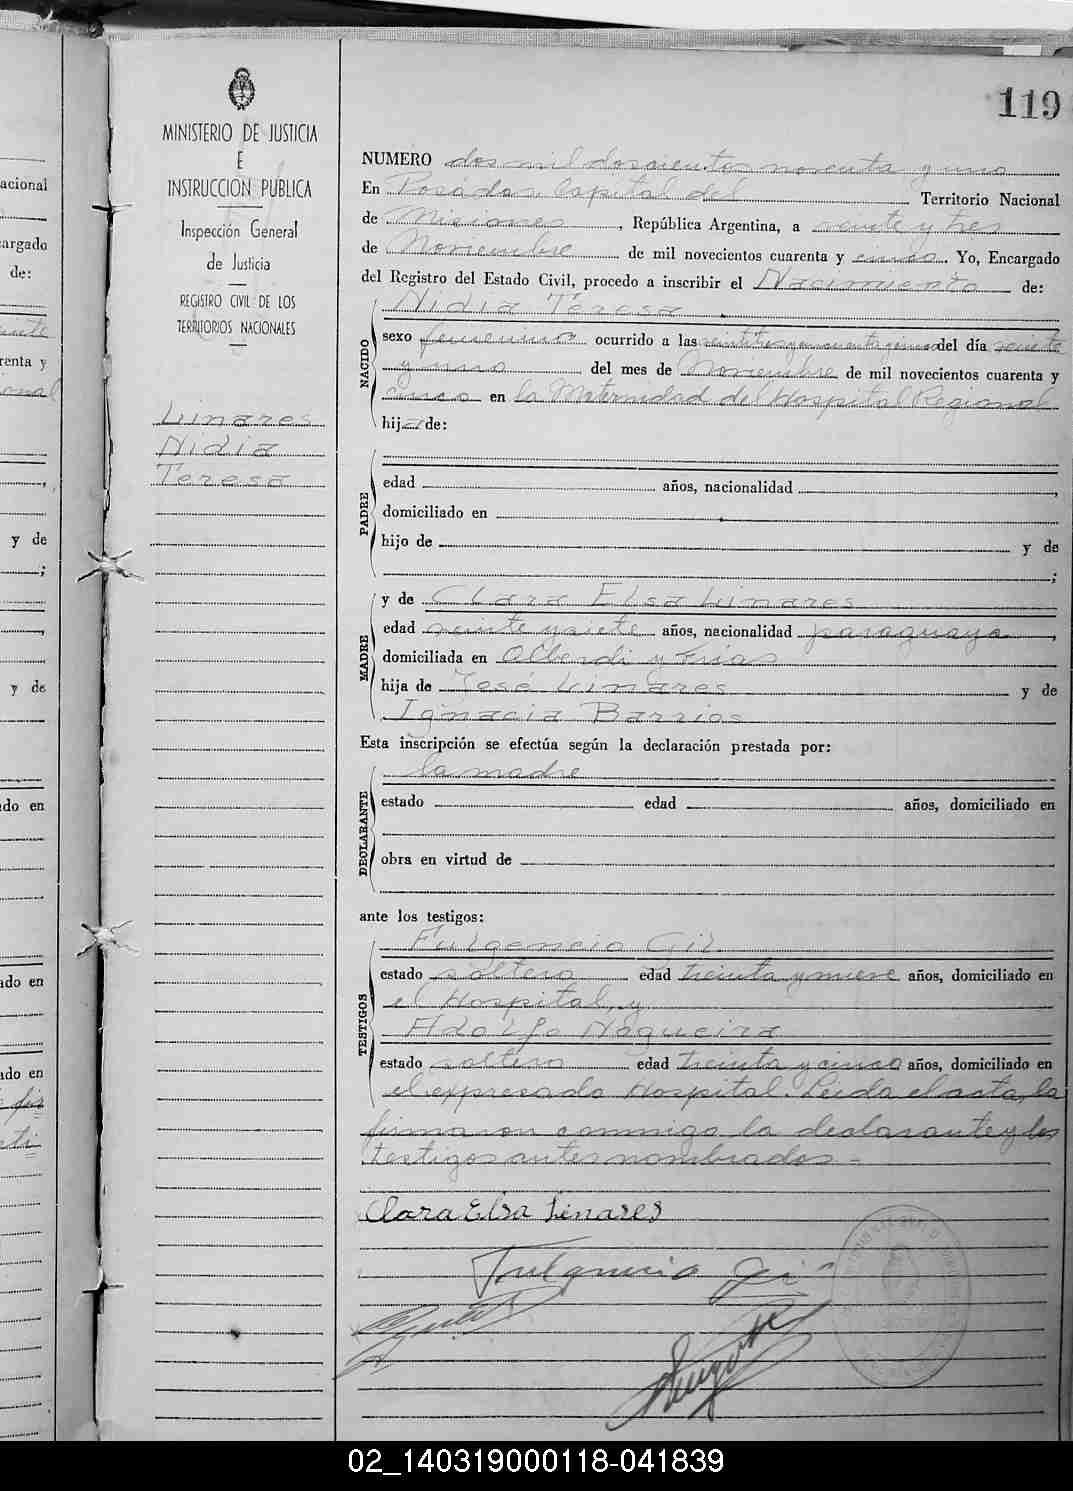 119
MINISTERIO DE JUSTICIA
E
INSTRUCCIÓN PÚBLICA
Inspección General
de Justicia
REGISTRO CIVIL DE LOS
TERRITORIOS NACIONALES
Linares
Nidia
Teresa
NUMERO dos mil doscientos noventa y uno
En Posadas Capital del Territorio Nacional
de Misiones, República Argentina, a veinte y tres
de Noviembre de mil novecientos cuarenta y cinco. Yo, Encargado
del Registro del Estado Civil, procedo a inscribir el Nacimiento de:
NACIDO
Nidia Teresa
sexo femenino ocurrido a las del día veinte
y uno del mes de Noviembre de mil novecientos cuarenta y
cinco en la Maternidad del Hospital Regional
hija de:
PADRE
edad años, nacionalidad ,
domiciliado en
hijo de y de
;
MADRE
y de Clara Elsa Linares
edad veinte y siete años, nacionalidad paraguaya,
domiciliada en Alberdi y Frias
hija de José Linares y de
Ignacia Barrios
Esta inscripción se efectúa según la declaración prestada por:
DECLARANTE
la madre
estado edad años, domiciliado en
obra en virtud de
ante los testigos:
TESTIGOS
Fulgencio Gil
estado soltero edad treinta y nueve años, domiciliado en
el Hospital, y
Adolfo Nogueira
estado soltero edad treinta y cinco años, domiciliado en
el expresado Hospital. Leida el acta, la
firmaron conmigo la declarante y los
testigos antes nombrados.-
Clara Elsa Linares
Fulgencio Gil
02_140319000118-041839
acional
argado
de:
renta y
y de
;
y de
do en
do en
do en